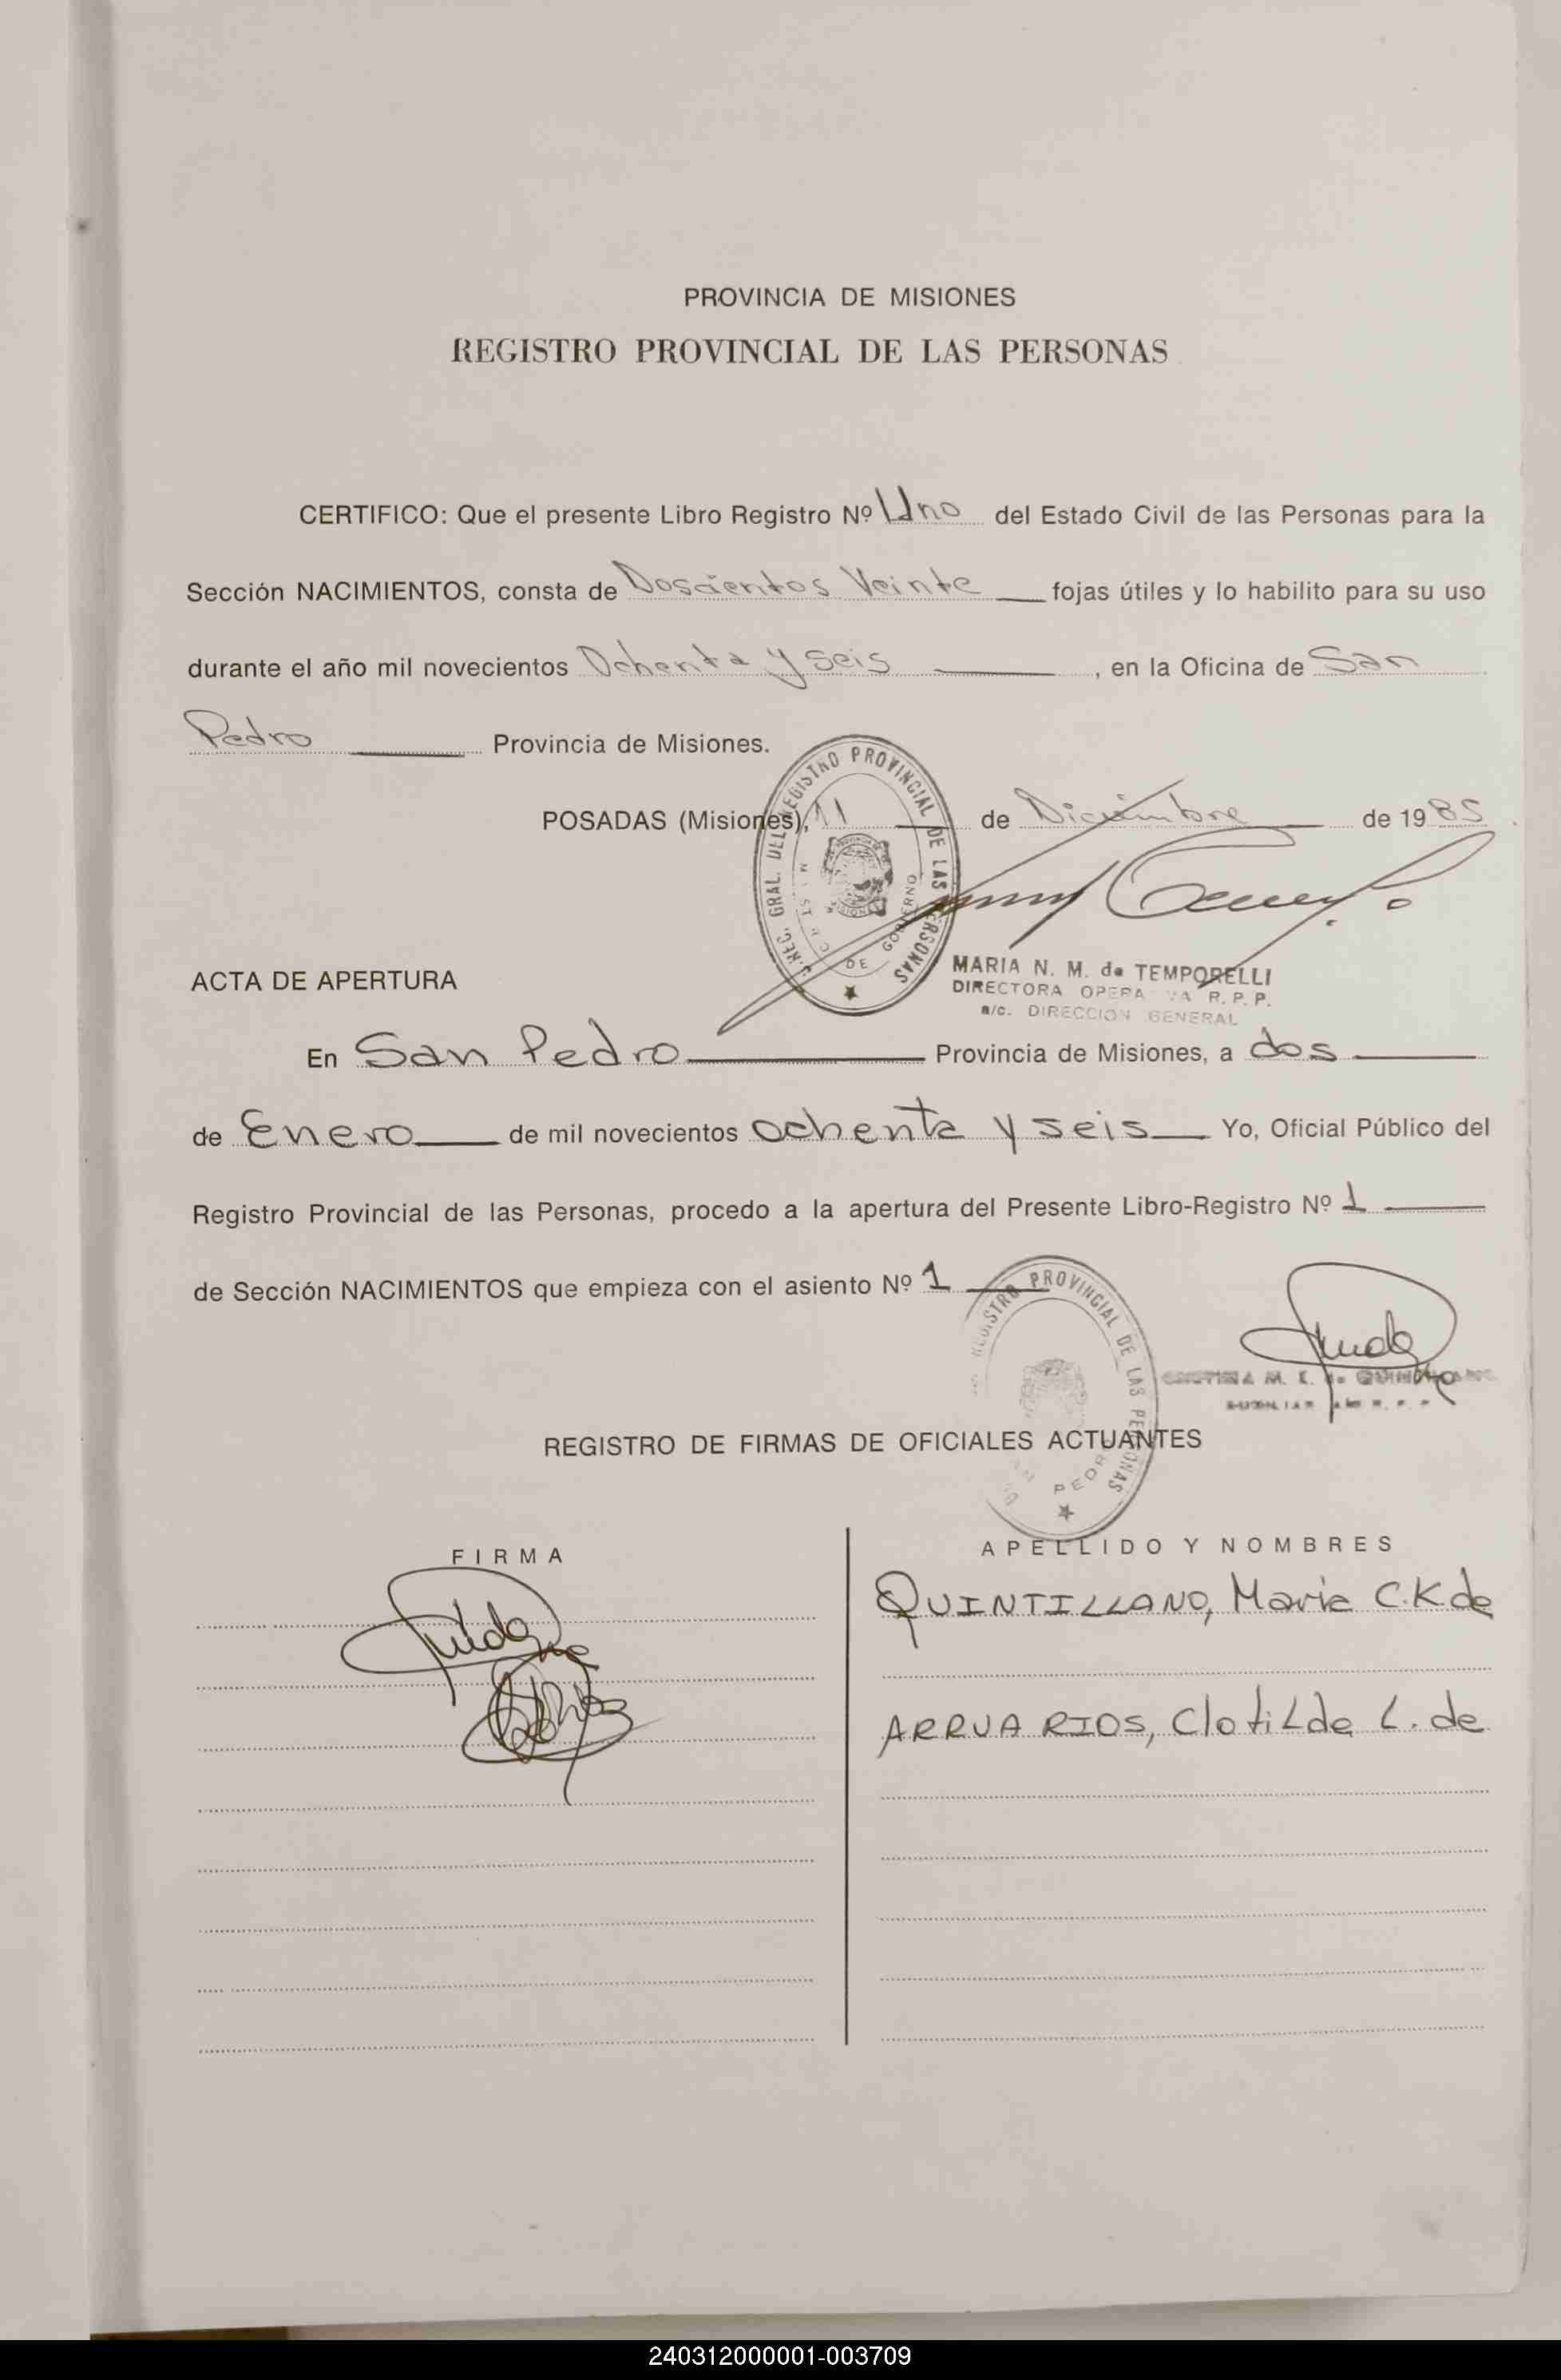 PROVINCIA DE MISIONES
REGISTRO PROVINCIAL DE LAS PERSONAS
CERTIFICO: Que el presente Libro Registro Nº Uno del Estado Civil de las Personas para la
Sección NACIMIENTOS, consta de Doscientos Veinte fojas útiles y lo habilito para su uso
durante el año mil novecientos Ochenta y Seis, en la Oficina de San
Pedro Provincia de Misiones.
POSADAS (Misiones), 11 de Diciembre de 1985
REGISTRO PROVINCIAL DE LAS PERSONAS
DE GOBIERNO
MARIA N. M. de TEMPORELLI
DIRECTORA OPERA VA R. P. P.
a/c. DIRECCION GENERAL
ACTA DE APERTURA
En San Pedro Provincia de Misiones, a dos
de Enero de mil novecientos ochenta y seis Yo, Oficial Público del
Registro Provincial de las Personas, procedo a la apertura del Presente Libro-Registro Nº 1
de Sección NACIMIENTOS que empieza con el asiento Nº 1
REGISTRO PROVINCIAL DE LAS PERSONAS
PEDRO
REGISTRO DE FIRMAS DE OFICIALES ACTUANTES
FIRMA
APELLIDO Y NOMBRES
QUINTILLANO, Maria C.K de
ARRUA RIOS, Clotilde L. de
240312000001-003709